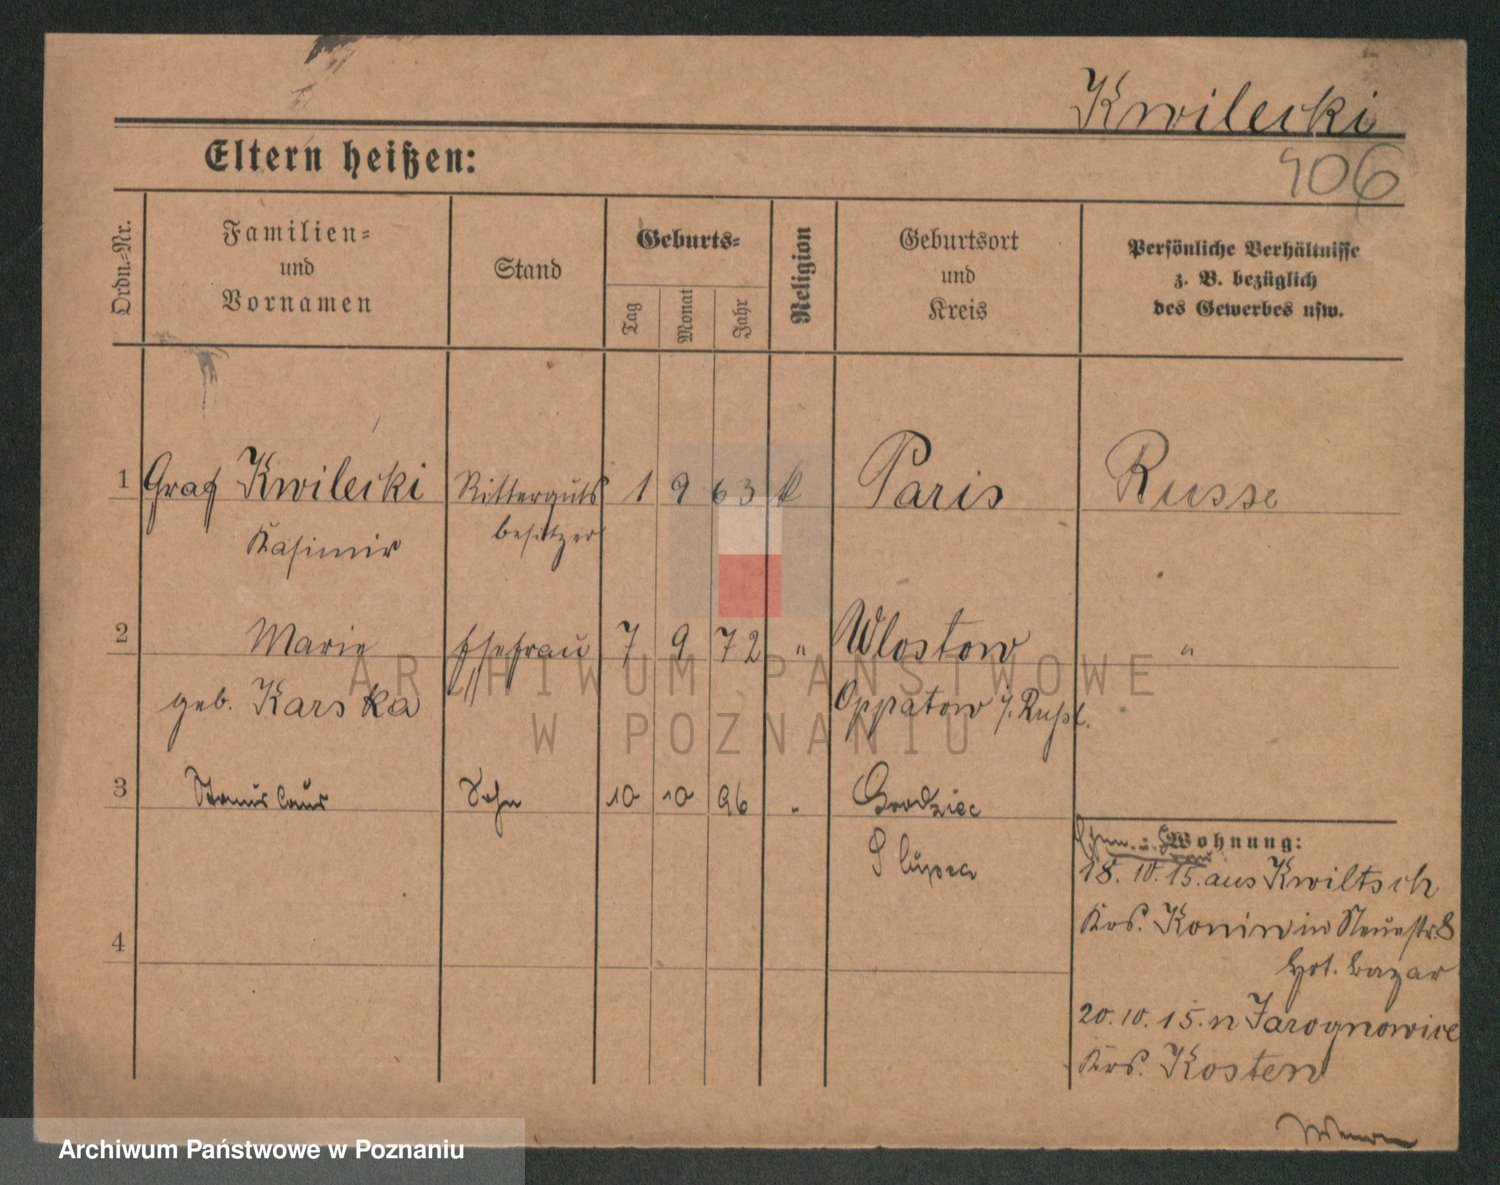 Kwilecki
Eltern heißen:
906
Ordn.-Nr.
Familien-
und
Vornamen
Stand
Geburts-
Tag
Monat
Jahr
Religion
Geburtsort
und
Kreis
Persönliche Verhältnisse
z. B. bezüglich
des Gewerbes usw.
1 Graf Kwilecki Ritterguts 1 9 63 k Paris Russe
Kasimir besitzer
2 Marie Ehefrau 7 9 72 " Wlostow "
geb. Karska Oppatow i/. Rußl.
3 Stanislaus Sohn 10 10 96 " Grodziec
Slupca
Wohnung:
18. 10. 15. aus Kwiltsch
Krs. Konin in Neuestr. 8
Hot. Bazar
4
20. 10. 15. n Jarognowice
Krs. Kosten
ARCHIWUM PAŃSTWOWE
W POZNANIU
Archiwum Państwowe w Poznaniu